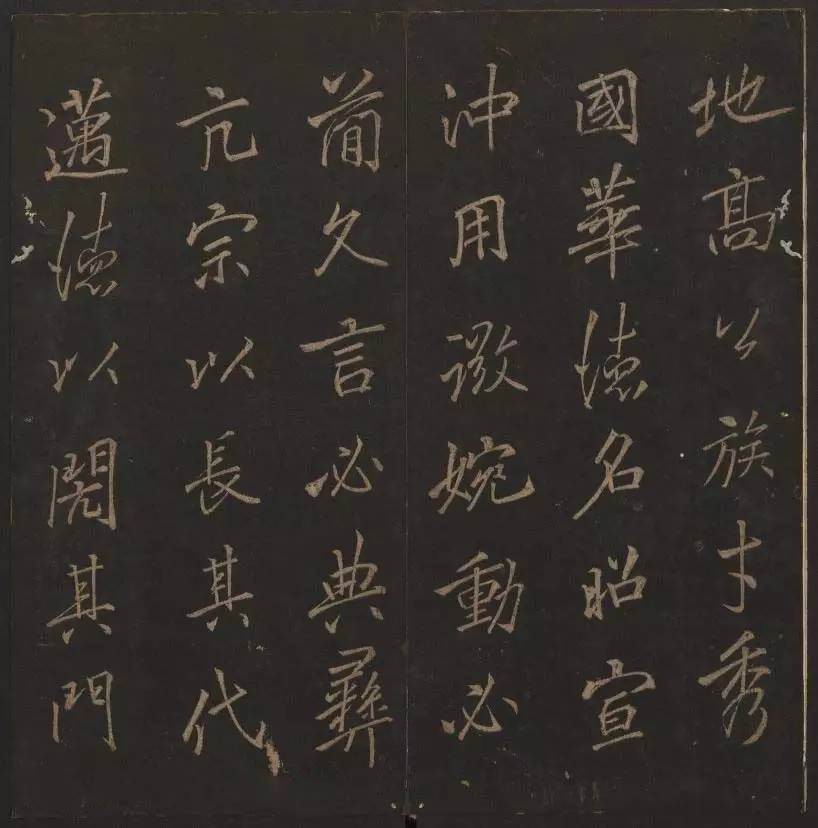 地高公族才秀
國華德名昭宣
沖用微婉動必
簡久言必典彝
亢宗以長其代
邁德以閱其門